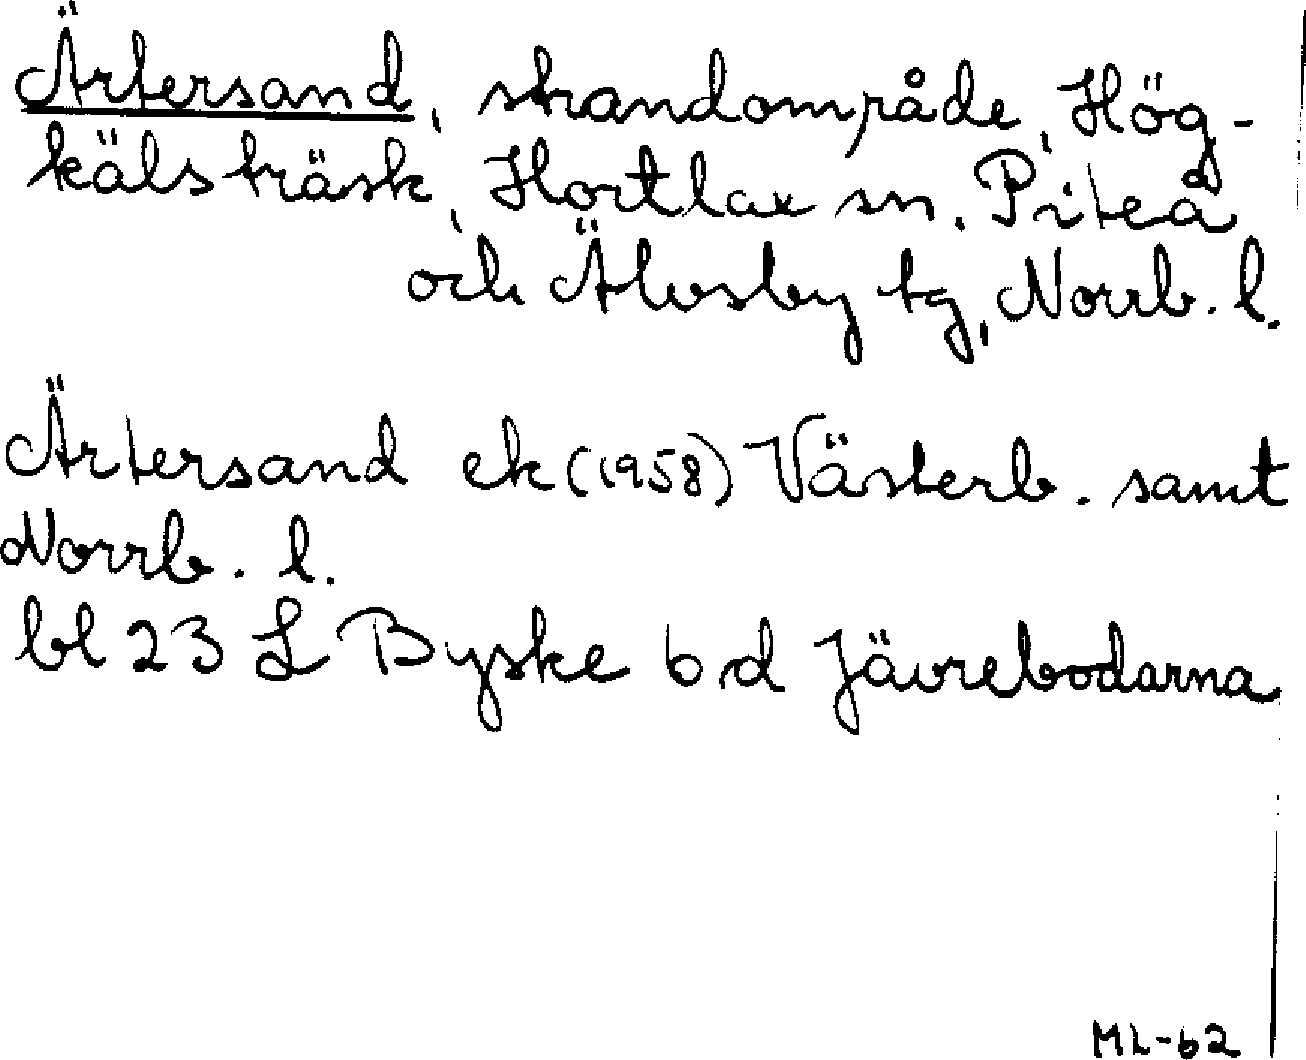 Ärtersand, strandområde, Hög-
kälsträsk, Hortlax sn. Piteå
och Älvsby tg, Norrb. l.
Ärtersand ek (1958) Västerb. samt
Norrb. l.
bl 23 L Byske b d Jävrebodarna
ML-62